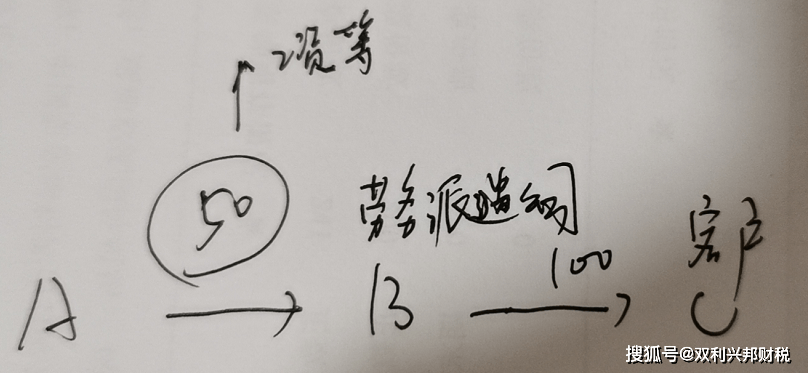 工资等
50
劳务派遣公司
100
客户
A
B
C
搜狐号@双利兴邦财税